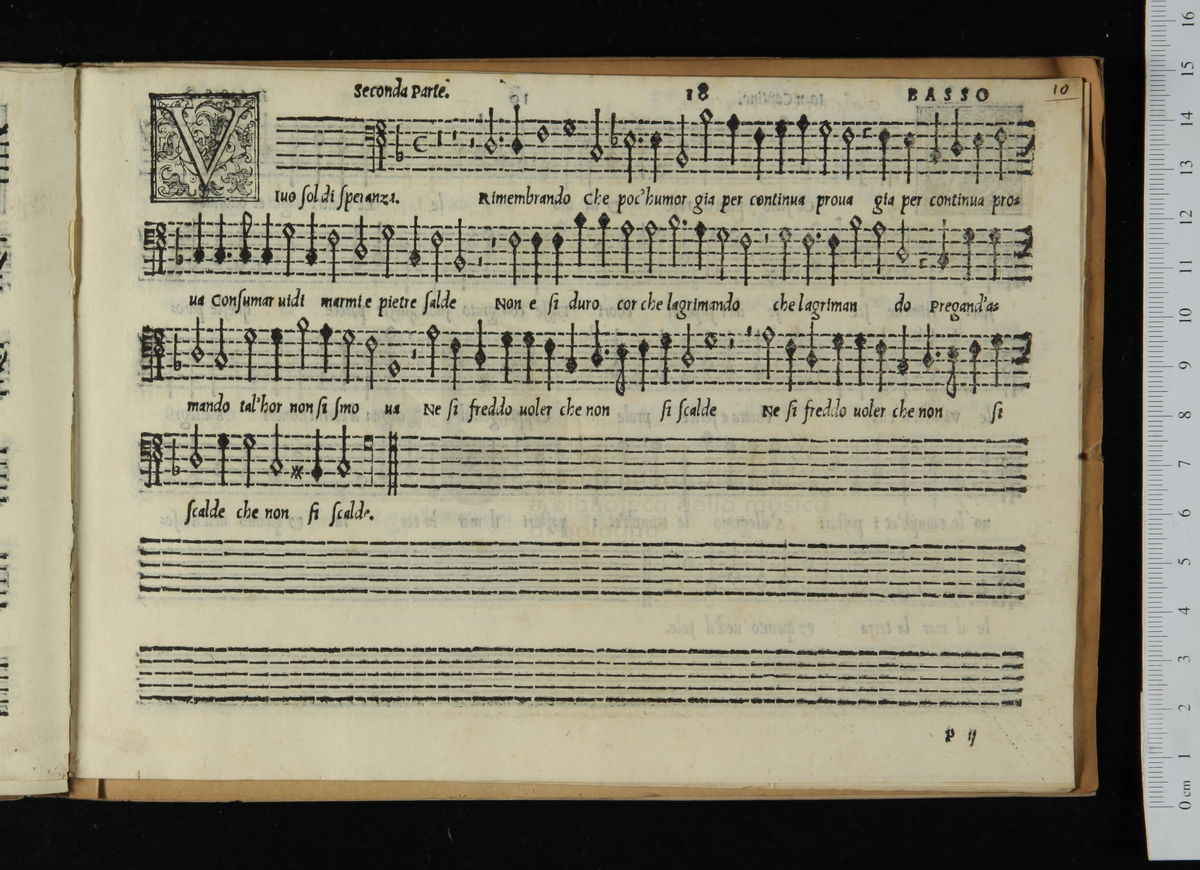 Seconda Parte. 18 BASSO 10
VIuo sol di speranza. Rimembrando Che poc'humor gia per continua proua gia per continua pro=
ua Consumar uidi marmi e pietre salde Non e si duro cor che lagrimando che lagriman do Pregand'a=
mando tal'hor non si smo ua Ne si freddo uoler che non si scalde Ne si freddo uoler che non si
scalde che non si scalde.
P ij
0 cm 1 2 3 4 5 6 7 8 9 10 11 12 13 14 15 16